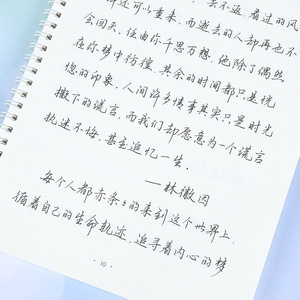 去不返，看过的风
还可以重来，而逝去的人却再也不
会回头，任由你千思万想，他除了偶然
在你梦中彷徨，其余的时间都只是恍
惚的印象。人间许多情事其实只是时光
撒下的谎言，而我们却愿意为一个谎言
执迷不悔，甚至追忆一生。
——林徽因
每个人都赤条条的来到这个世界上，
循着自己的生命轨迹，追寻着内心的梦
10